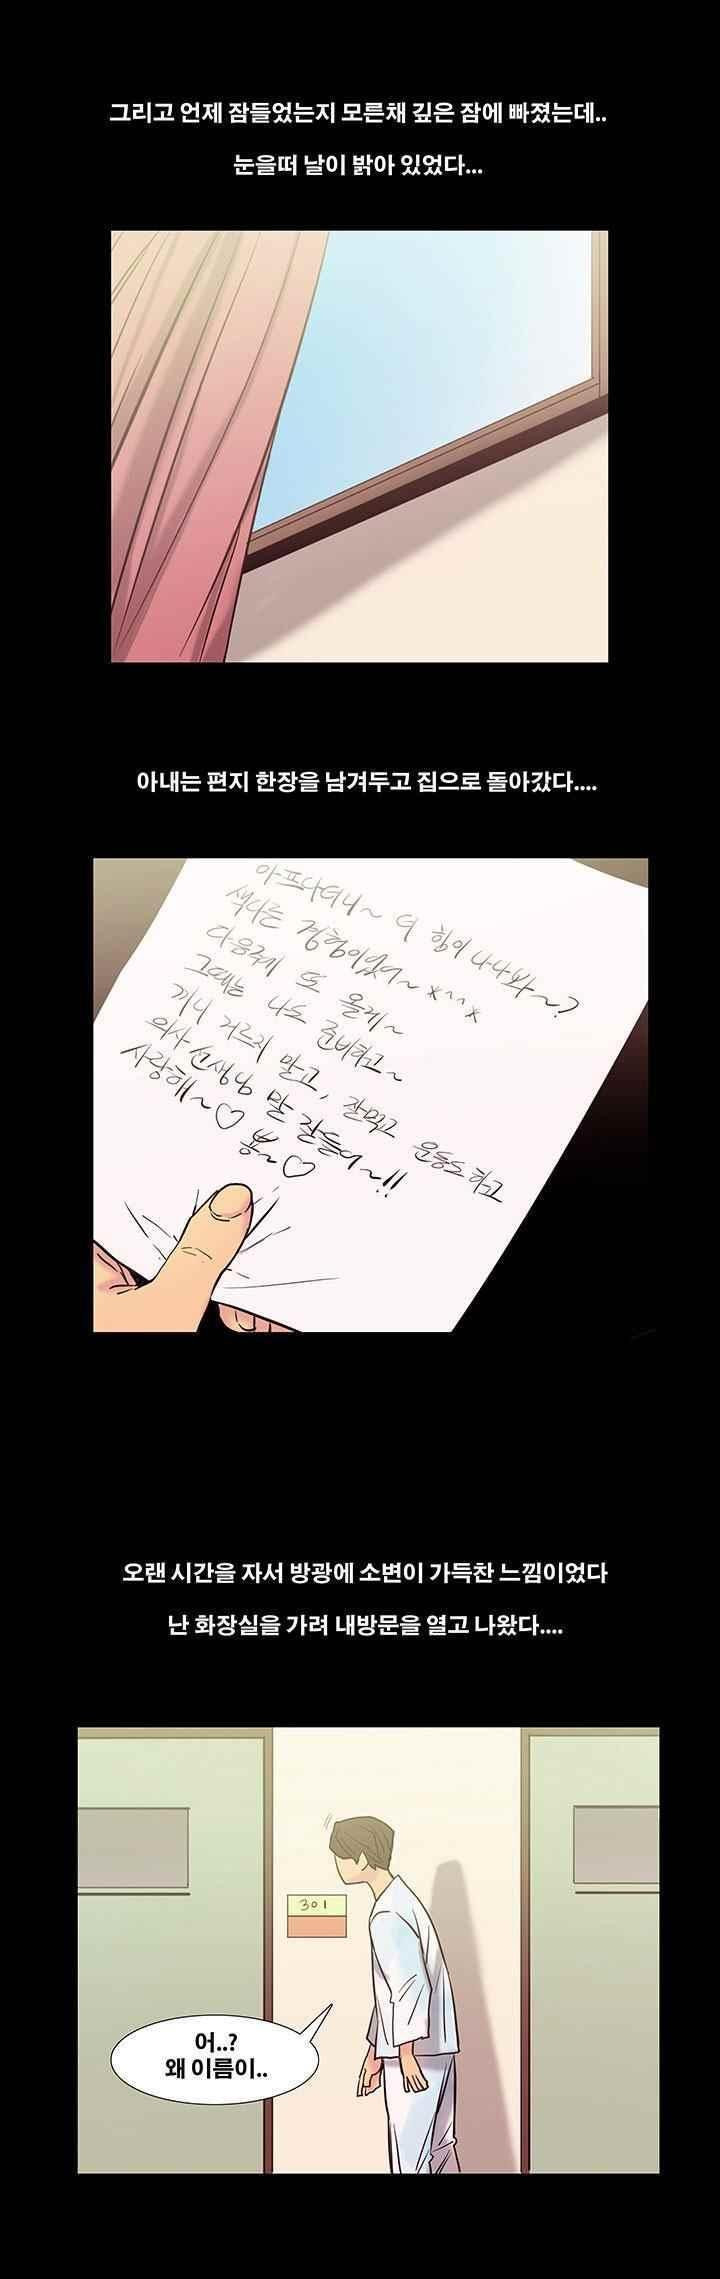 그리고 언제 잠들었는지 모른채 깊은 잠에 빠졌는데..
눈을떠 날이 밝아 있었다...
아내는 편지 한장을 남겨두고 집으로 돌아갔다....
아프다더니~ 더 힘이 나나봐~?
색다른 경험이었어~ x^^x
다음주에 또 올게~
그때는 나도 준비하고~
끼니 거르지 말고, 잘먹고 운동도 하고
의사 선생님 말 잘들어~!!
사랑해~♡ 뿅~♡
오랜 시간을 자서 방광에 소변이 가득찬 느낌이었다
난 화장실을 가려 내방문을 열고 나왔다....
301
어..?
왜 이름이..